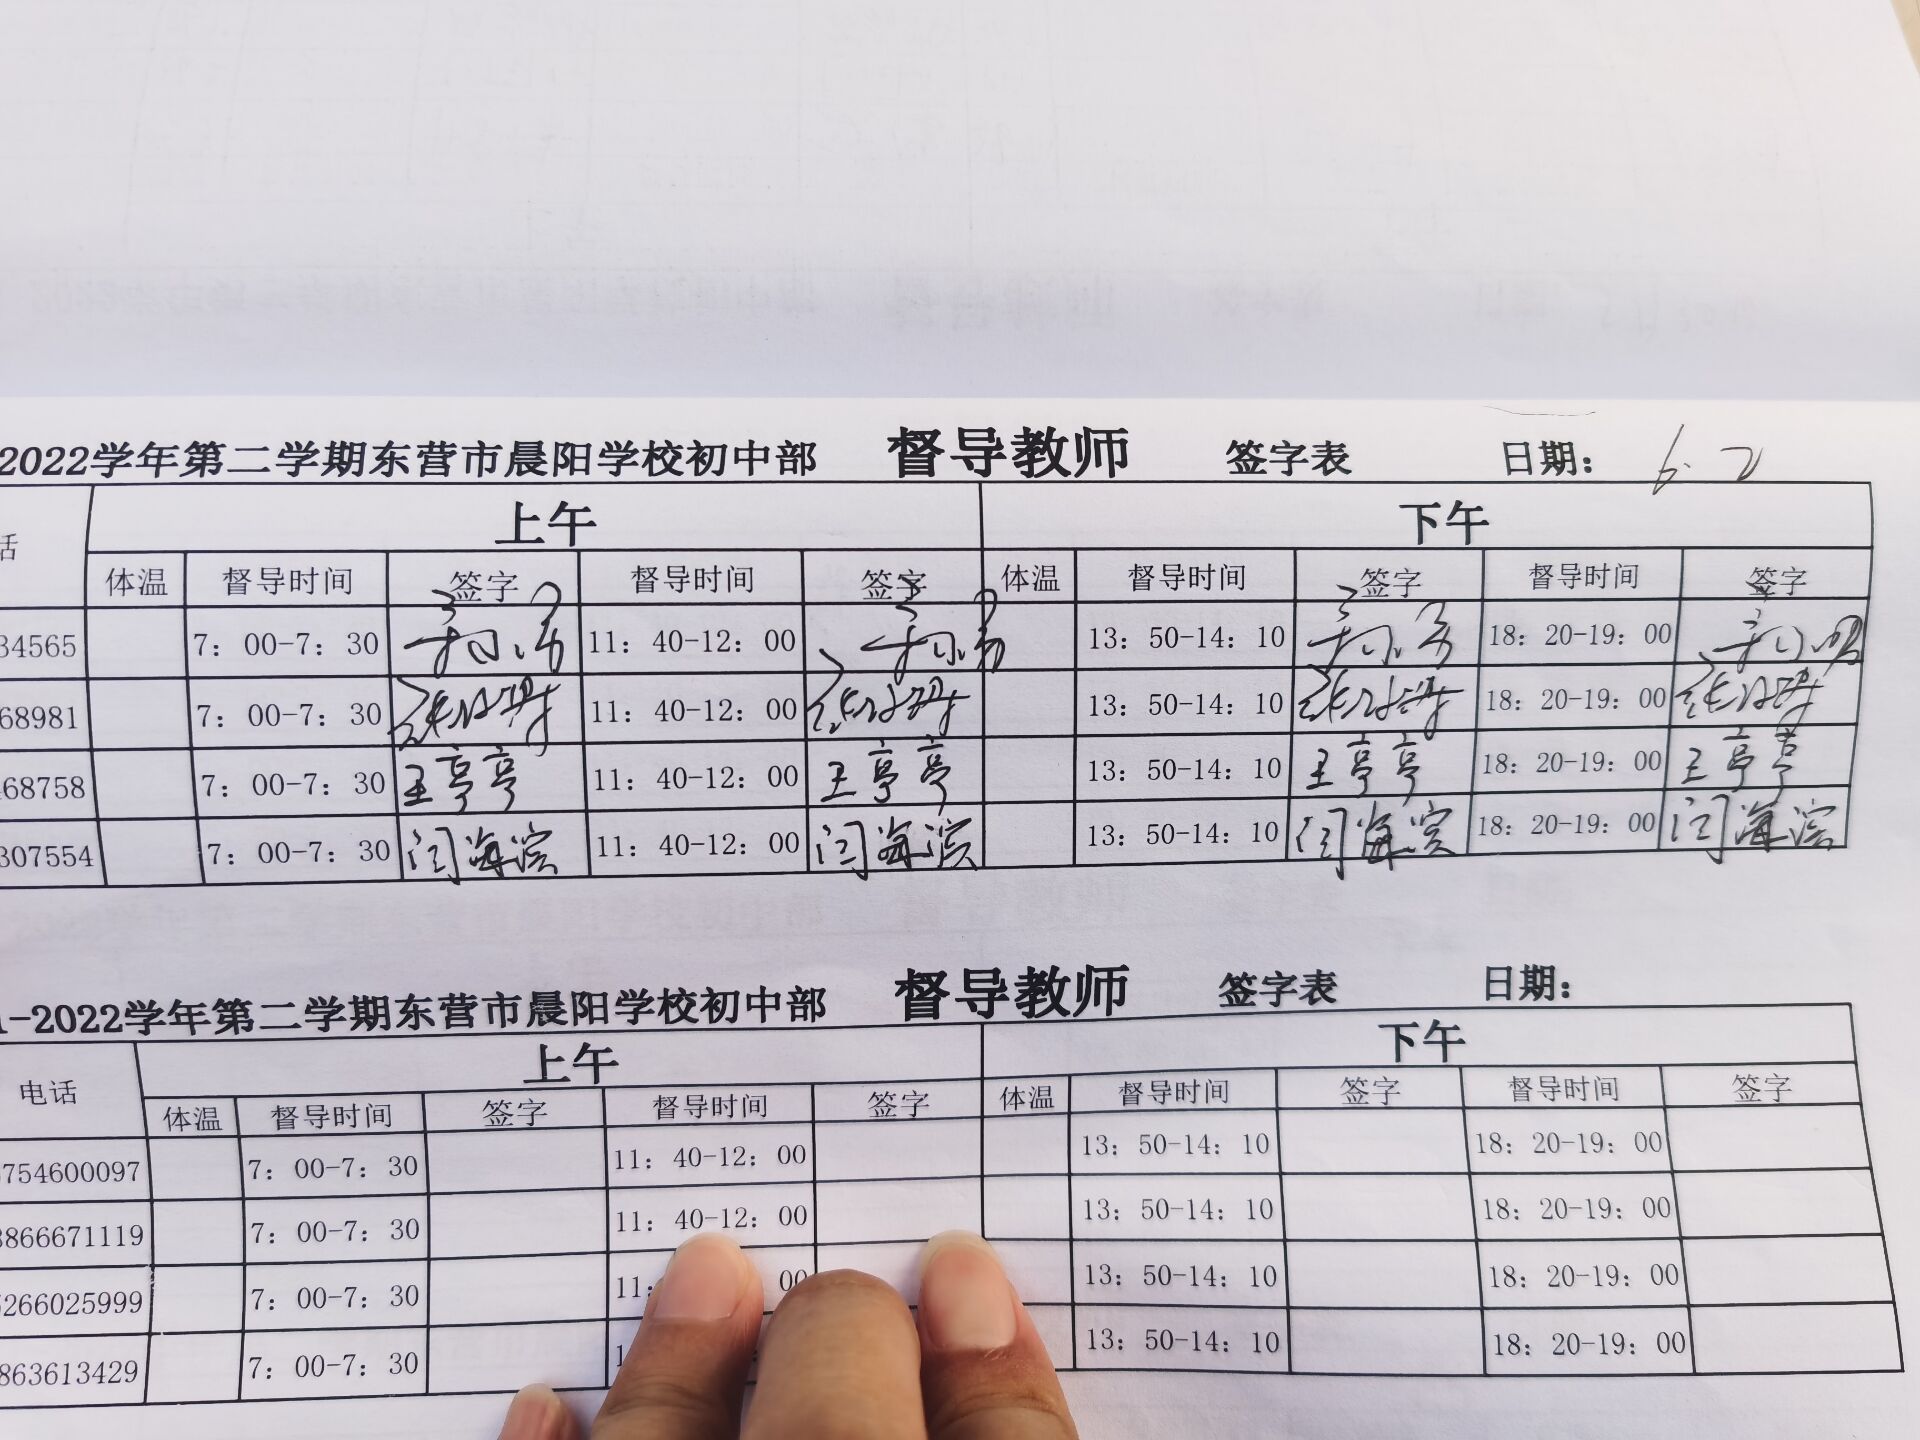 2022学年第二学期东营市晨阳学校初中部 督导教师 签字表 日期： 6.2
话 上午 下午
体温 督导时间 签字 督导时间 签字 体温 督导时间 签字 督导时间 签字
34565 7：00-7：30 11：40-12：00 13：50-14：10 18：20-19：00
68981 7：00-7：30 11：40-12：00 13：50-14：10 18：20-19：00
68758 7：00-7：30 王亭亭 11：40-12：00 王亭亭 13：50-14：10 王亭亭 18：20-19：00 王亭亭
307554 7：00-7：30 闫海滨 11：40-12：00 闫海滨 13：50-14：10 闫海滨 18：20-19：00 闫海滨
1-2022学年第二学期东营市晨阳学校初中部 督导教师 签字表 日期：
电话 上午 下午
体温 督导时间 签字 督导时间 签字 体温 督导时间 签字 督导时间 签字
754600097 7：00-7：30 11：40-12：00 13：50-14：10 18：20-19：00
866671119 7：00-7：30 11：40-12：00 13：50-14：10 18：20-19：00
266025999 7：00-7：30 11： 00 13：50-14：10 18：20-19：00
863613429 7：00-7：30 13：50-14：10 18：20-19：00